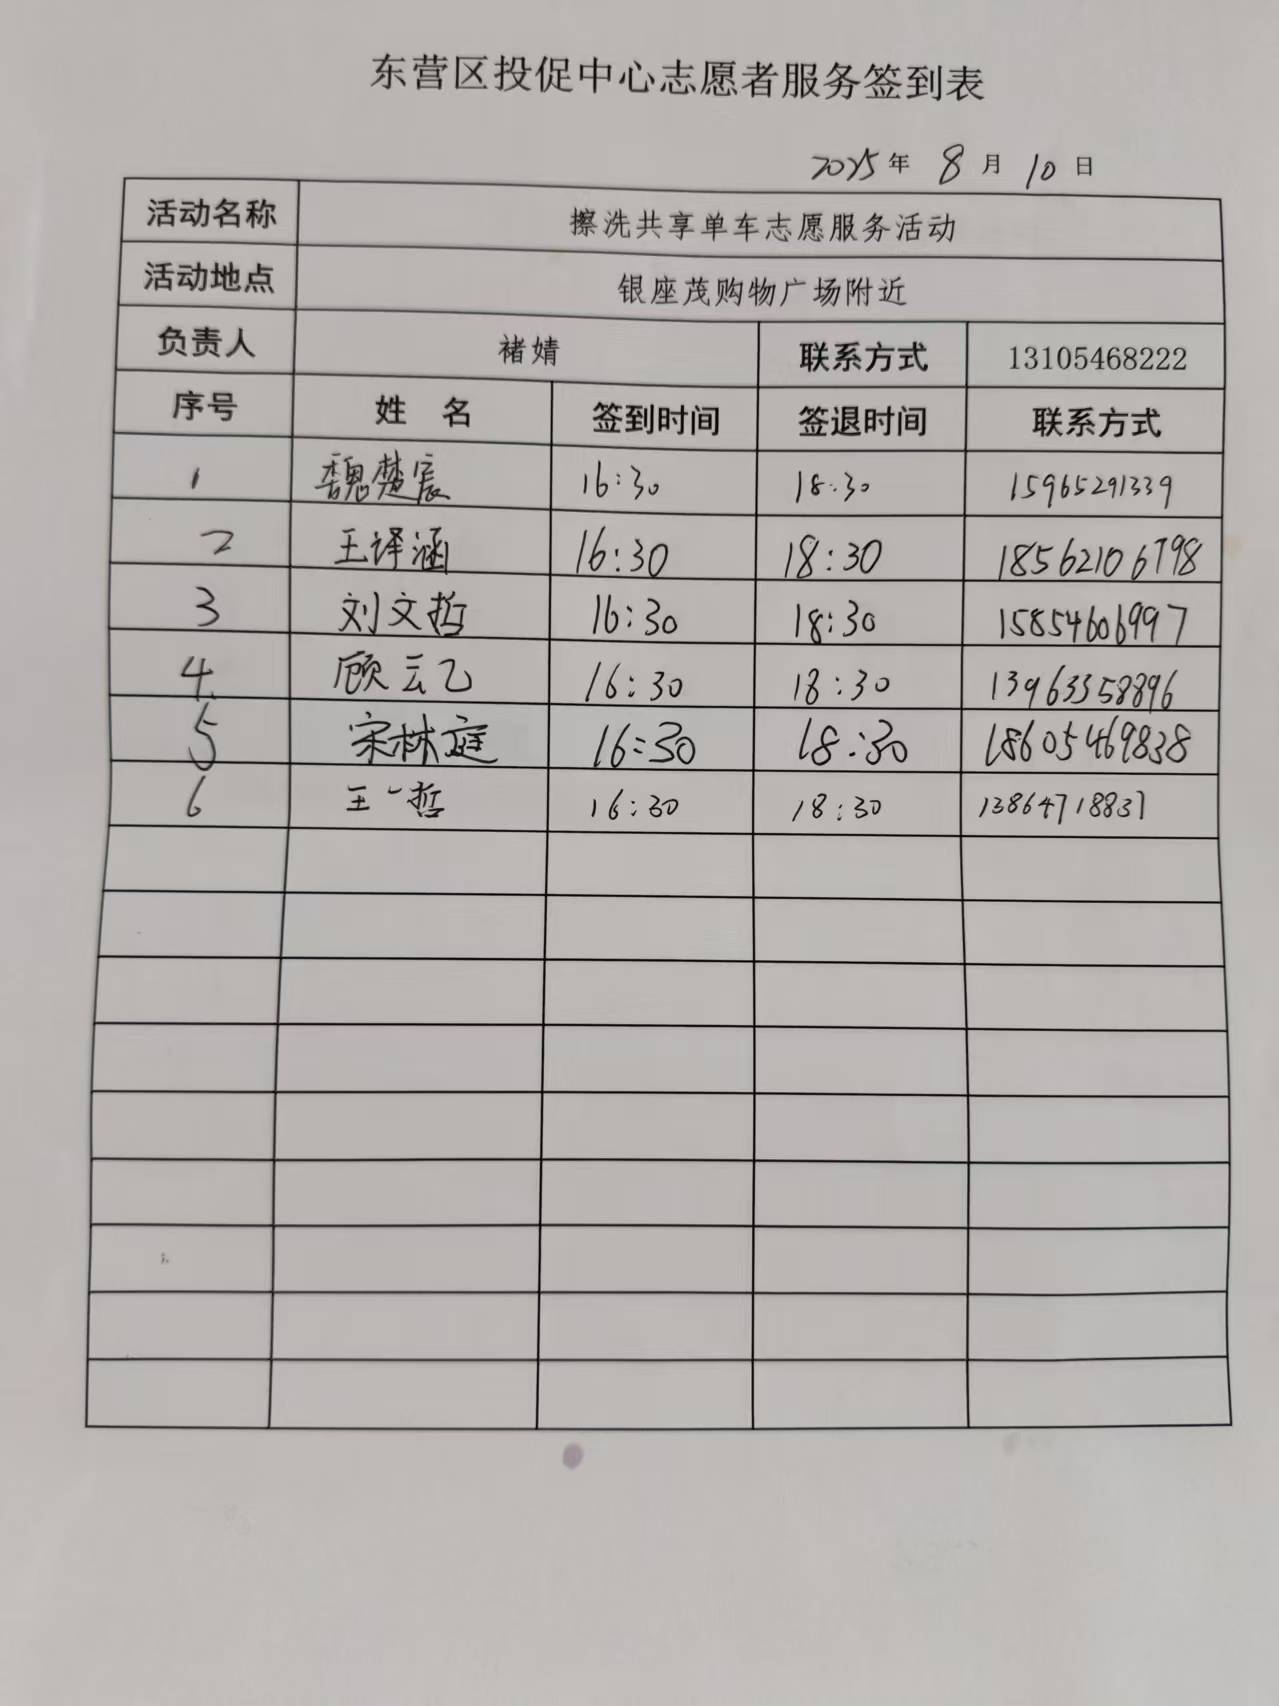 东营区投促中心志愿者服务签到表
2025年 8月 10日
活动名称 擦洗共享单车志愿服务活动
活动地点 银座茂购物广场附近
负责人 褚婧 联系方式 13105468222
序号 姓 名 签到时间 签退时间 联系方式
1 魏楚宸 16:30 18:30 15965291339
2 王译涵 16:30 18:30 18562106798
3 刘文哲 16:30 18:30 15854606997
4. 顾云乙 16:30 18:30 13963358896
5 宋林庭 16:30 18:30 18605469838
6 王一哲 16:30 18:30 13864718837